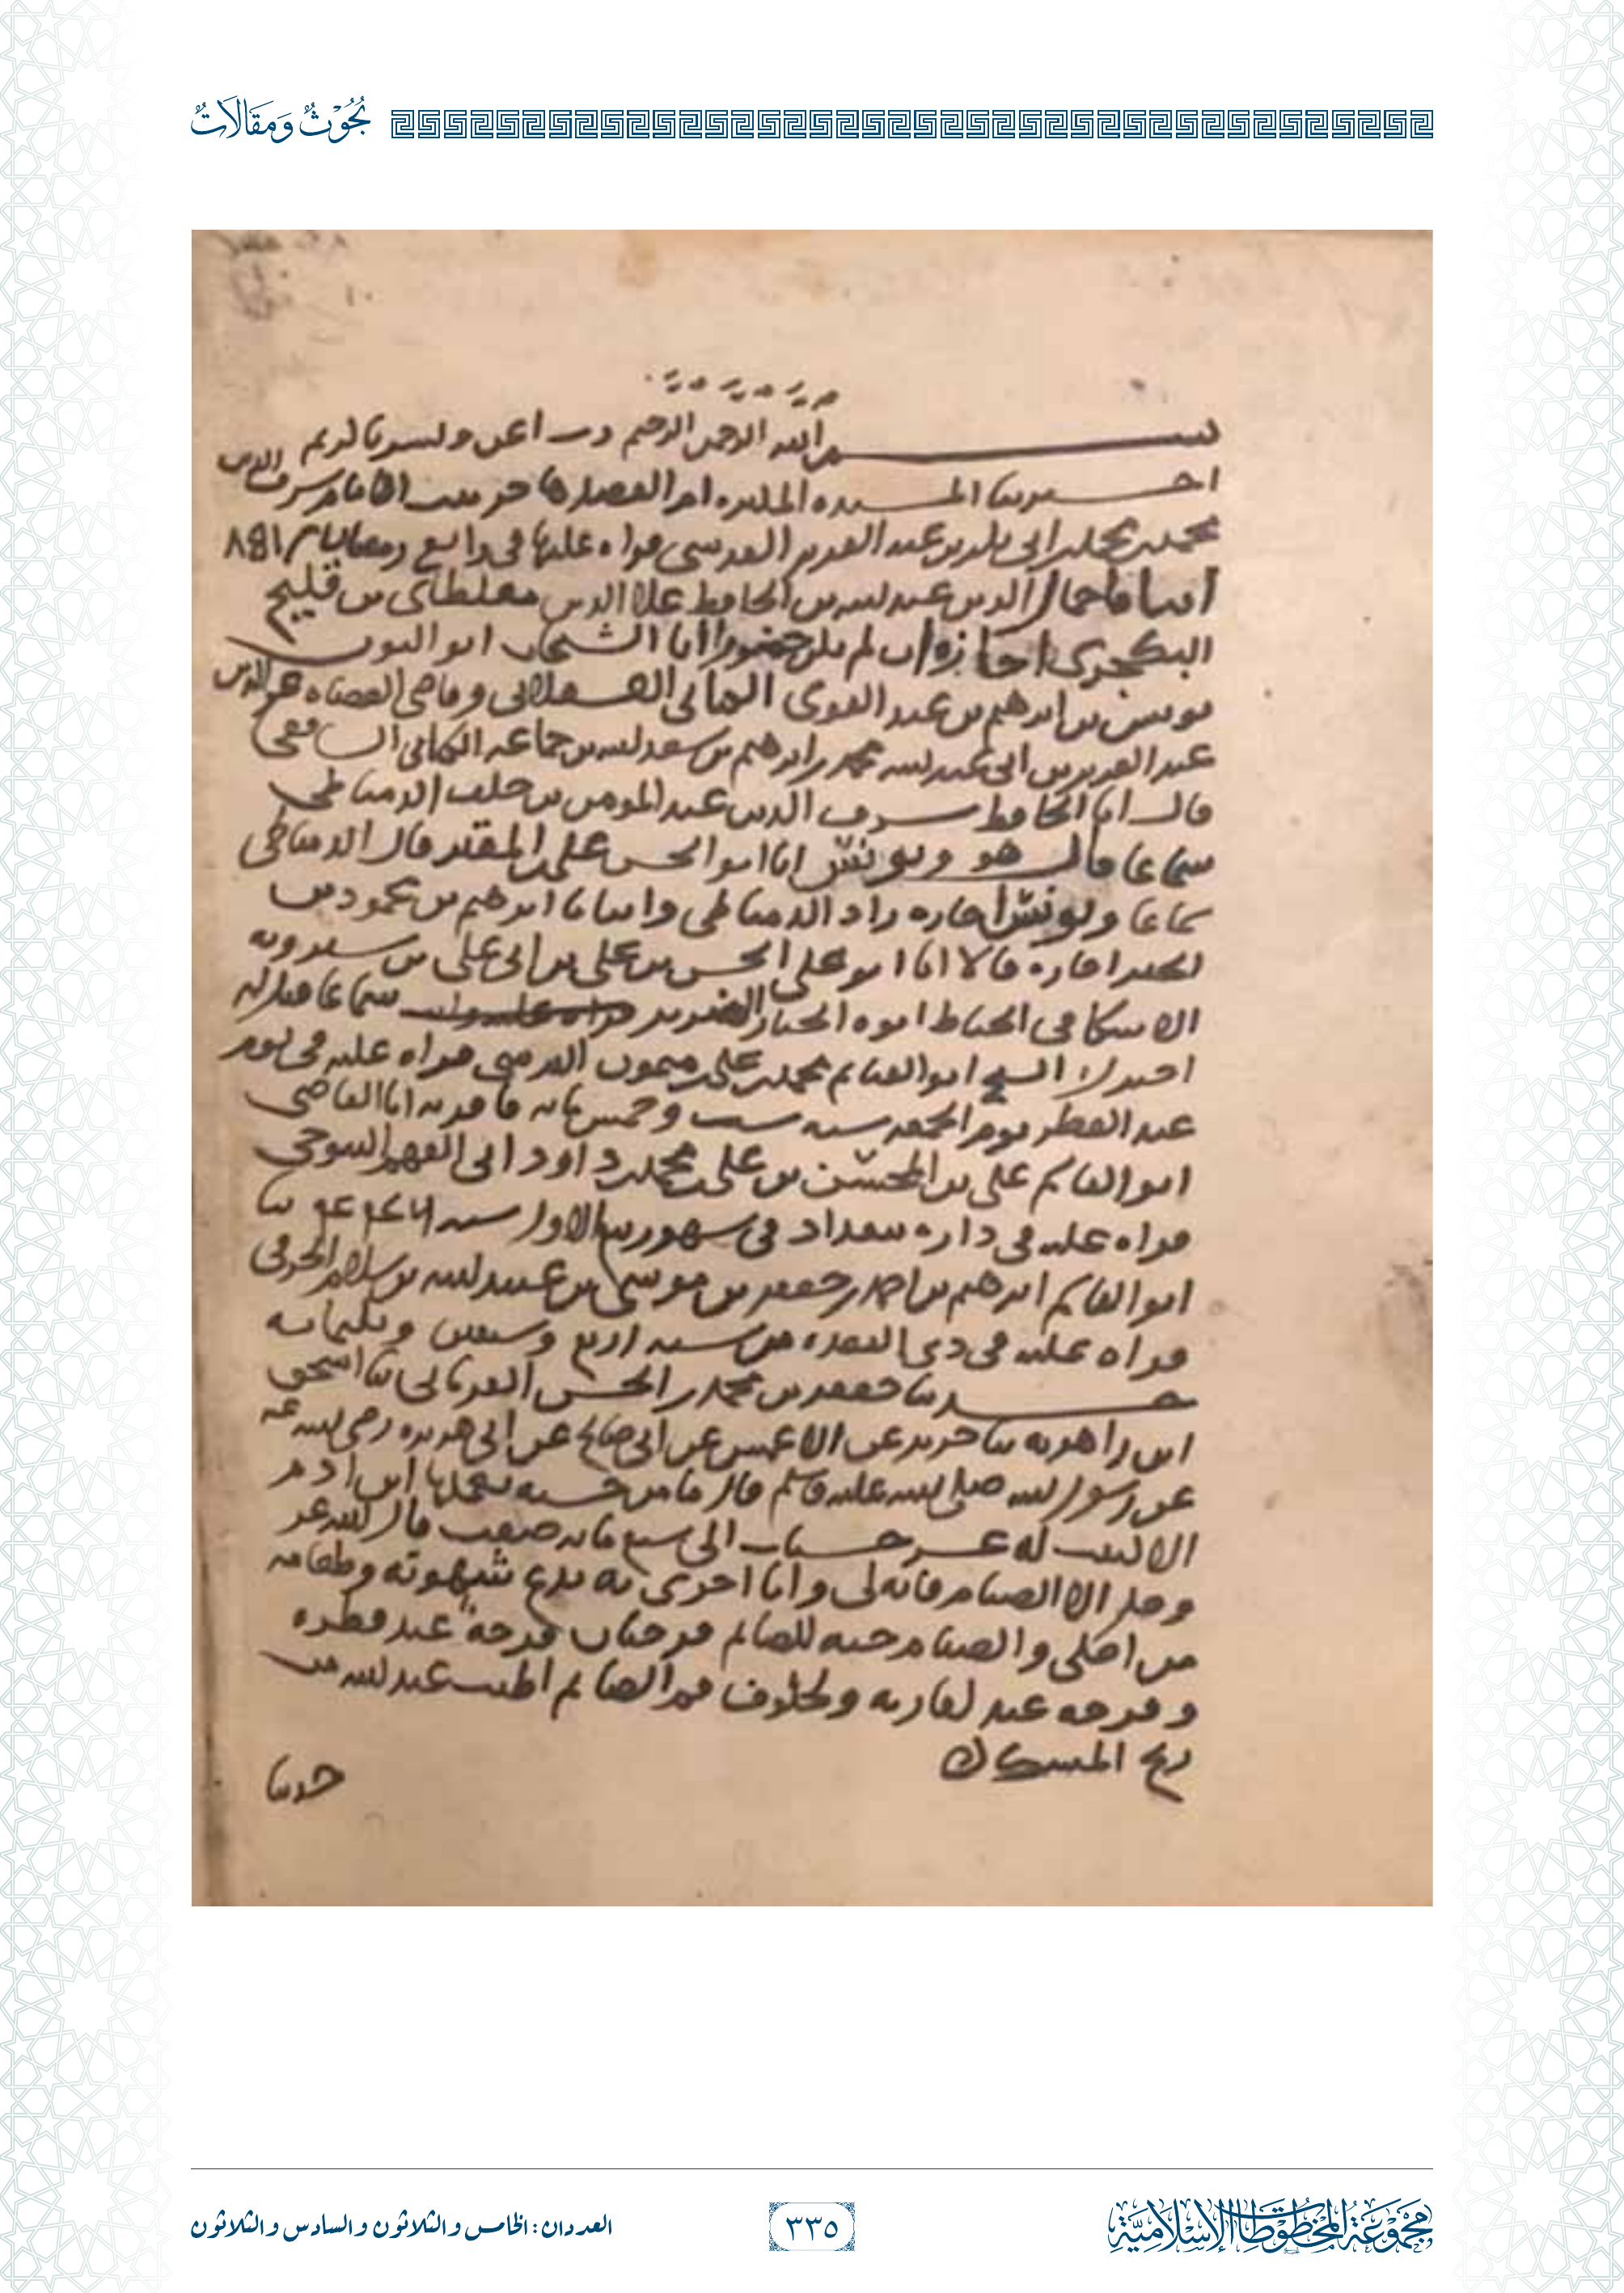 بُحُوْثٌ وَمَقَالَاتٌ
بسم الله الرحمن الرحيم رب اعن ويسر يا كريم
اخبرتنا المسندة ام الفضل هاجر بنت الامام شرف الدين
محمد بن محمد بن ابي بكر بن عبد العزيز القدسي قراه عليها في رابع رمضان ٨٤١
انبانا جمال الدين عبد الله بن الحافظ علا الدين مغلطاي بن قليج
البكجري اجازه ان لم يكن حضورا انا الشهاب ابو النون
يونس بن ابرهيم بن عبد القوي العسقلاني وقاضي القضاه عز الدين
عبد العزيز بن ابي عبد الله محمد بن ابرهيم بن سعد الله بن جماعه الكناني الشافعي
قالا انا الحافظ شرف الدين عبد المومن بن خلف الدمياطي
سماعا قال هو ويونس انا ابو الحسن علي بن المقير قال الدمياطي
سماعا ويونس اجازه زاد الدمياطي وانبانا ابرهيم بن محمود بن
الخير اجازه قالا انا ابو علي الحسن بن علي بن ابي علي بن شيرويه
الاسكافي الخياط ابوه الخباز الضرير سماعا
اخبرك الشيخ ابو الغنايم محمد بن علي بن ميمون النرسي قراه عليه في يوم
عيد الفطر يوم الجمعه سنه ست وخمس مايه فاقر به انا القاضي
ابو القاسم علي بن المحسن بن علي بن محمد بن داود ابي الفهم التنوخي
قراه عليه في داره ببغداد في شهور ربيع الاول سنه ثنا
ابو القاسم ابرهيم بن احمد بن جعفر بن موسى بن عبد الله بن سلام الخرقي
قراه عليه في ذي القعده من سنه اربع وسبعين وثلثمايه
حدثنا جعفر بن محمد بن الحسن الفريابي ثنا اسحق
ابن راهويه ثنا جرير عن الاعمش عن ابي صالح عن ابي هريره رضي الله عنه
عن رسول الله صلى الله عليه وسلم قال ما من حسنه يعملها ابن ادم
الا كتب له عشر حسنات الى سبع مايه ضعف قال الله عز
وجل الا الصيام فانه لي وانا اجزي به يدع شهوته وطعامه
من اجلي والصيام جنه للصايم فرحتان فرحة عند فطره
وفرحه عند لقا ربه ولخلوف فم الصايم اطيب عند الله من
ريح المسك
حدثنا
مَجْمُوعَةُ المَخْطُوطَاتِ الإِسْلَامِيَّةِ
٣٣٥
العددان: الخامس والثلاثون والسادس والثلاثون